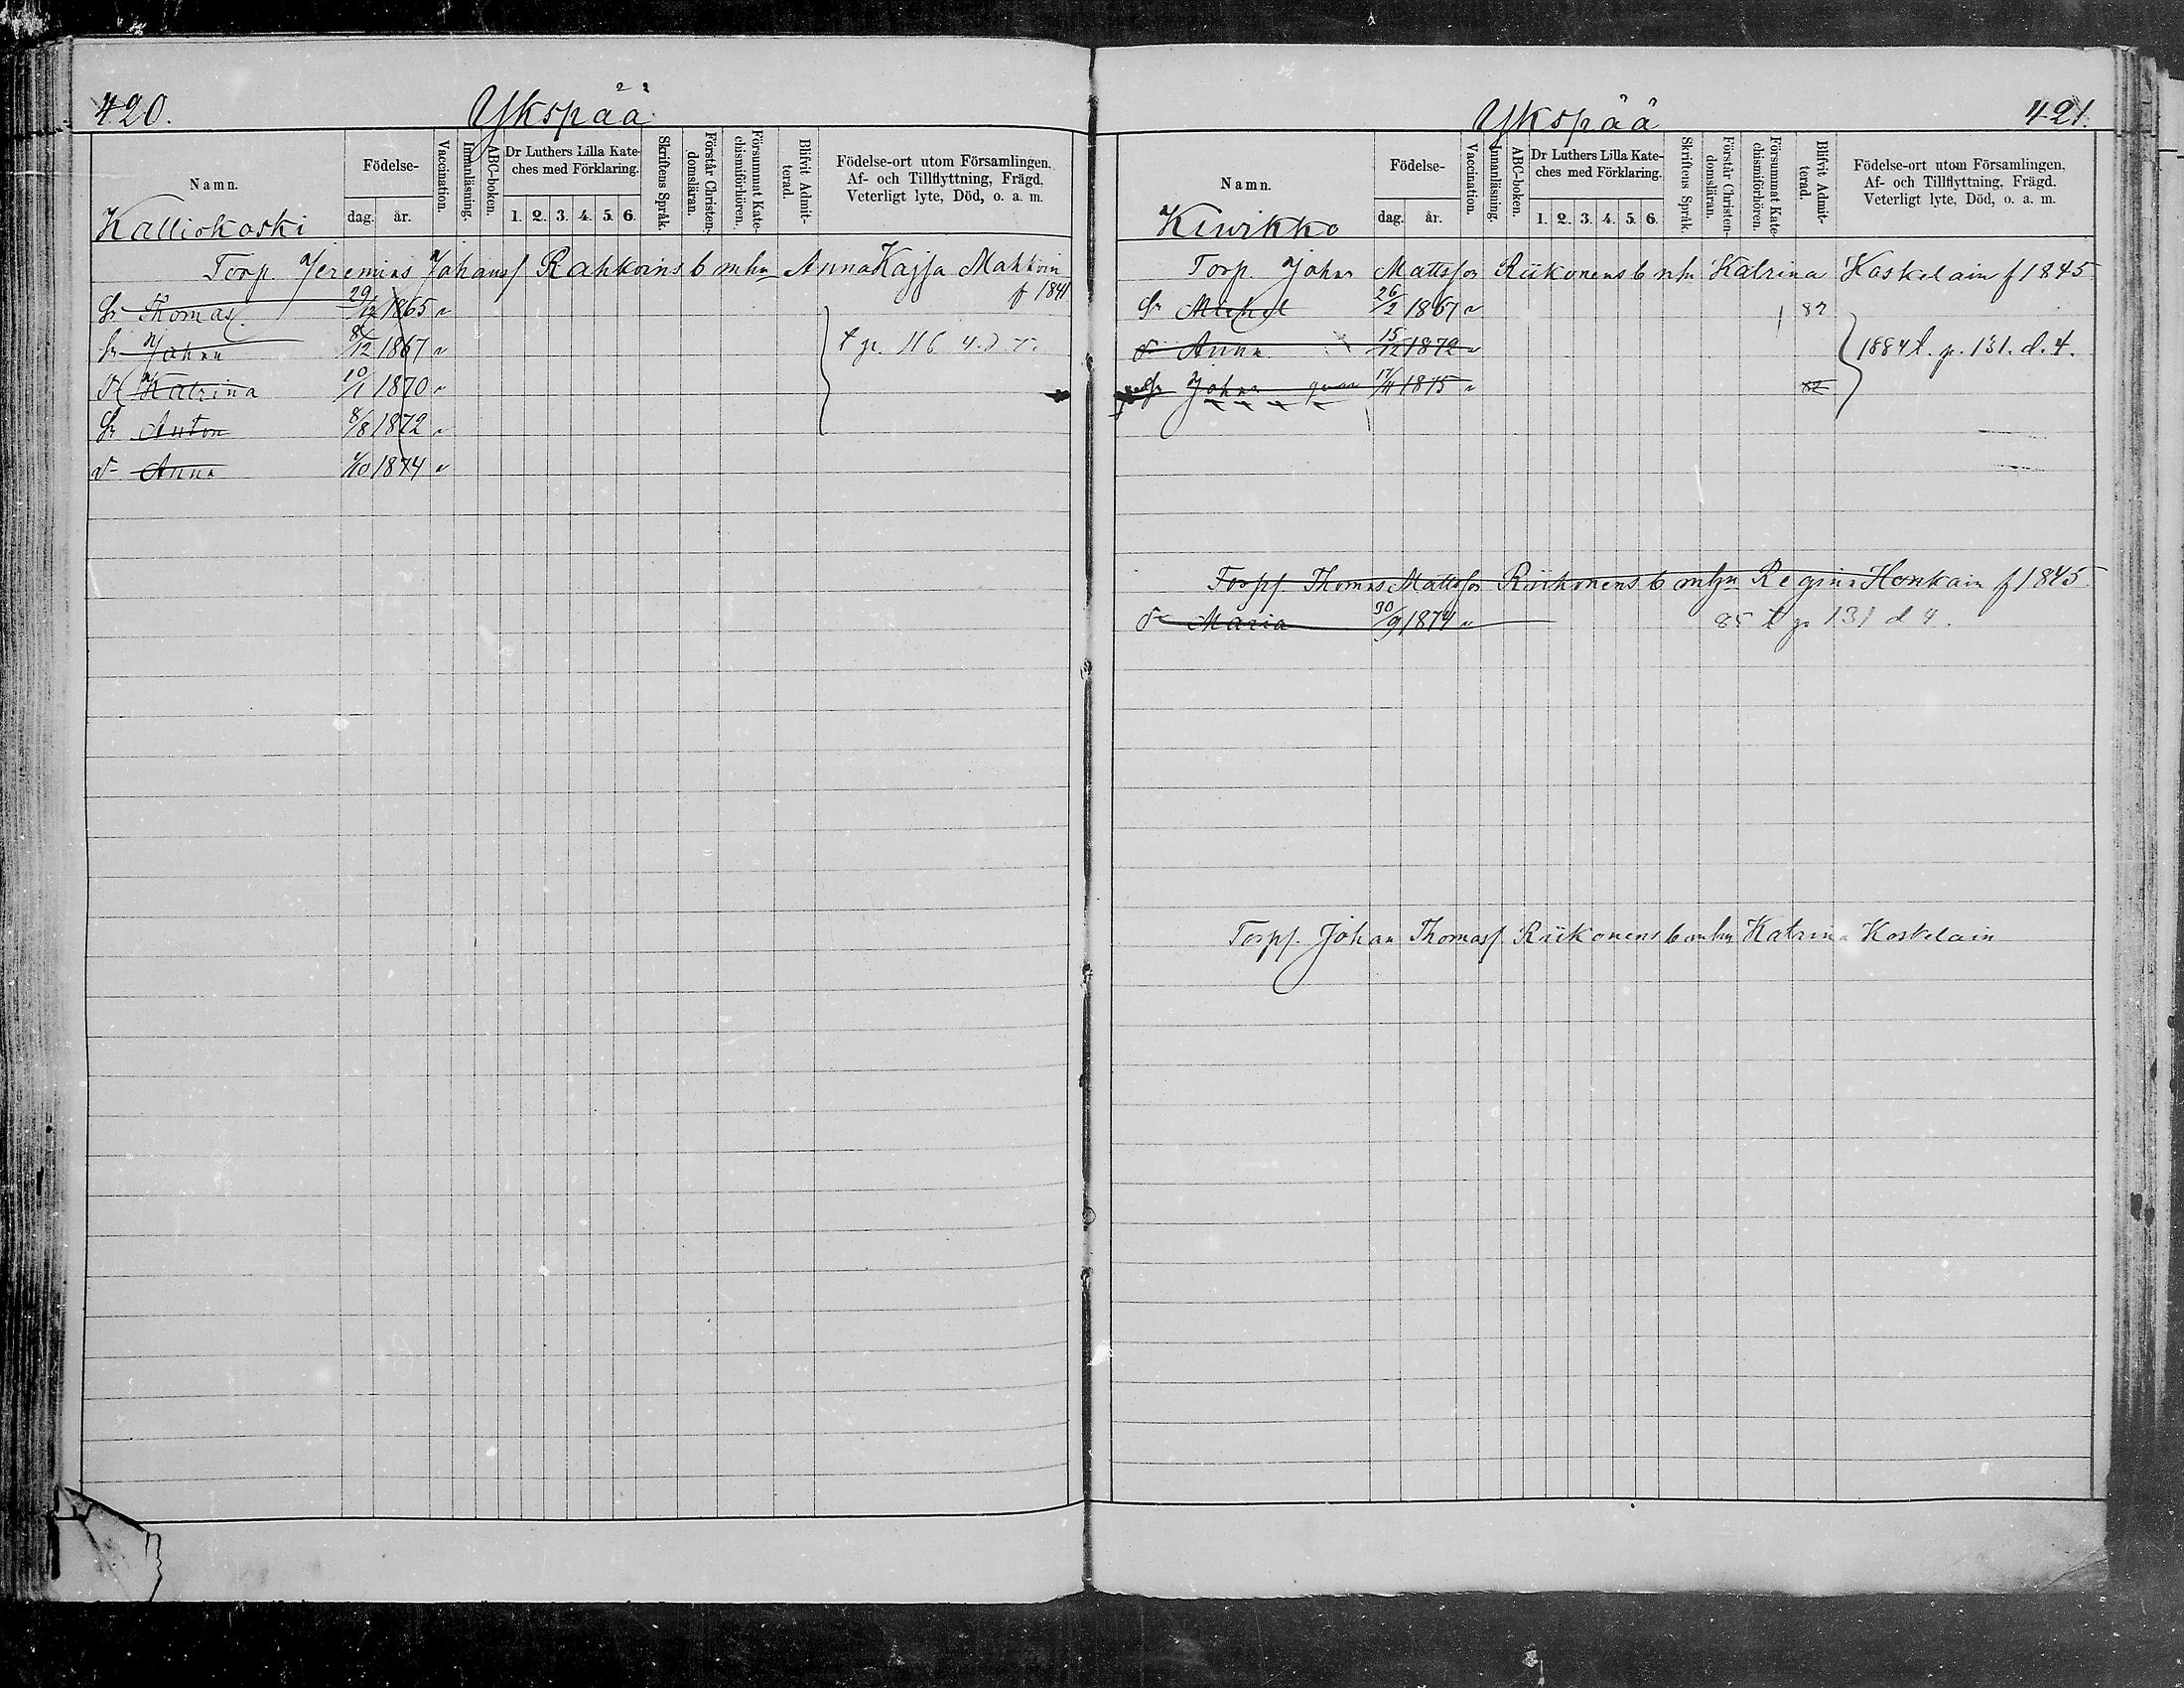 420.
Ykspää
Namn.
Födelse-
dag.
år.
Vaccination.
Innanläsning.
ABC-boken.
Dr Luthers Lilla Kate-
ches med Förklaring.
1. 2. 3. 4. 5. 6.
Skriftens Språk.
Förstår Christen-
domsläran.
Försummat Kate-
chismiförhören.
Blifvit Admit-
terad.
Födelse-ort utom Församlingen.
Af- och Tillflyttning, Frägd,
Veterligt lyte, Död, o. a. m.
Kalliokoski
Torp. Jeremias Johanss Rahkoins b mhu Anna Kajsa Mahkoin
f 1841
Sr Thomas 29/12 1865
Sr Johan 8/12 1867
Dr Katrina 10/1 1870
t p. 116
Sr Anton 8/8 1872
Dr Anna 1/10 1874
Ykspää
421.
Namn.
Födelse-
dag.
år.
Vaccination.
Innanläsning.
ABC-boken.
Dr Luthers Lilla Kate-
ches med Förklaring.
1. 2. 3. 4. 5. 6.
Skriftens Språk.
Förstår Christen-
domsläran.
Försummat Kate-
chismiförhören.
Blifvit Admit-
terad.
Födelse-ort utom Församlingen,
Af- och Tillflyttning, Frägd.
Veterligt lyte, Död, o. a. m.
Kiwikko
Torp. Johan Mattsson Riikonens b mhu Katrina Koskelain f 1845
Sr Michel 26/2 1867
Dr Anna 15/12 1872
1884 t. p. 131. d. 4.
Sr Johan 17/11 1875
Torpf. Thomas Mattsson Riikonens b mhu Regina Honkain f 1845
Dr Maria 30/9 1874 85 t p 131 d 4.
Torpf. Johan Thomass Riikonens b mhu Katrina Koskelain